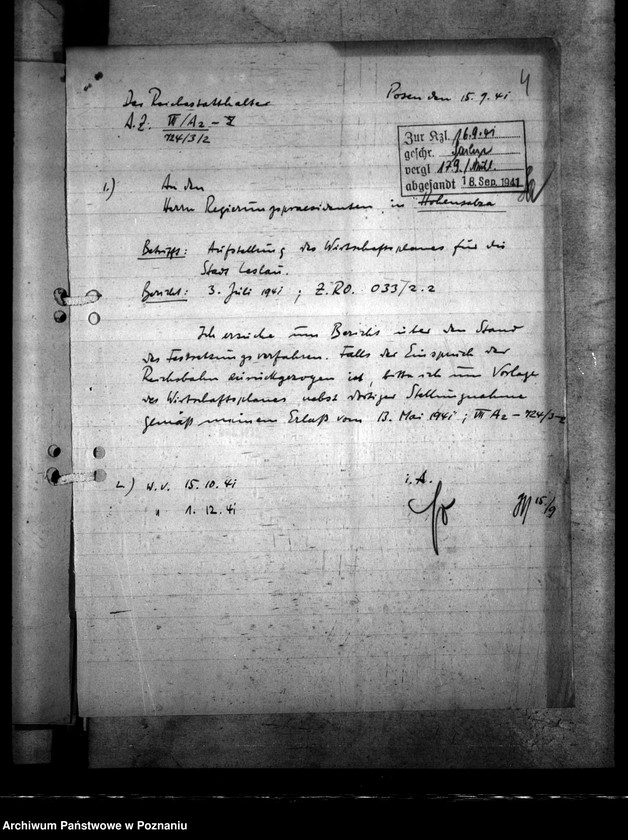 4
Der Reichsstatthalter
Posen den 15.9.41
A.Z. VI/A2 – Z
724/3/2
Zur Kzl. 16.9.41
geschr.
vergl 17.9./
abgesandt 18. Sep. 1941
1.) An den
Herrn Regierungspraesidenten in Hohensalza
Betrifft: Aufstellung des Wirtschaftsplanes für die
Stadt Leslau.
Bericht: 3. Juli 1941 ; Z.RO. 033/2.2
Ich ersuche um Bericht über den Stand
des Festsetzungsverfahren. Falls der Einspruch der
Reichsbahn zurückgezogen ist, bitte ich um Vorlage
des Wirtschaftsplanes nebst dortiger Stellungnahme
gemäß meinem Erlaß vom 13. Mai 1941 ; VI A2 – 724/3-2
2.) W.V. 15.10.41
" 1.12.41
i.A.
15/9
Archiwum Państwowe w Poznaniu